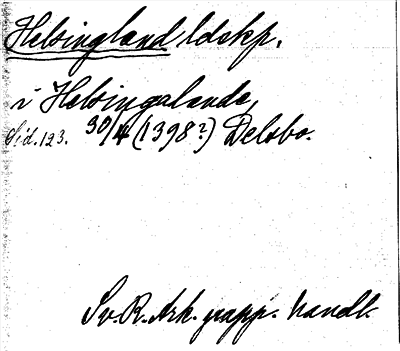 Helsingland ldskp.
i Helsingalande,
Sid. 123. 30/4 (1398?) Delsbo.
Sv. R. Ark. papp. handl.